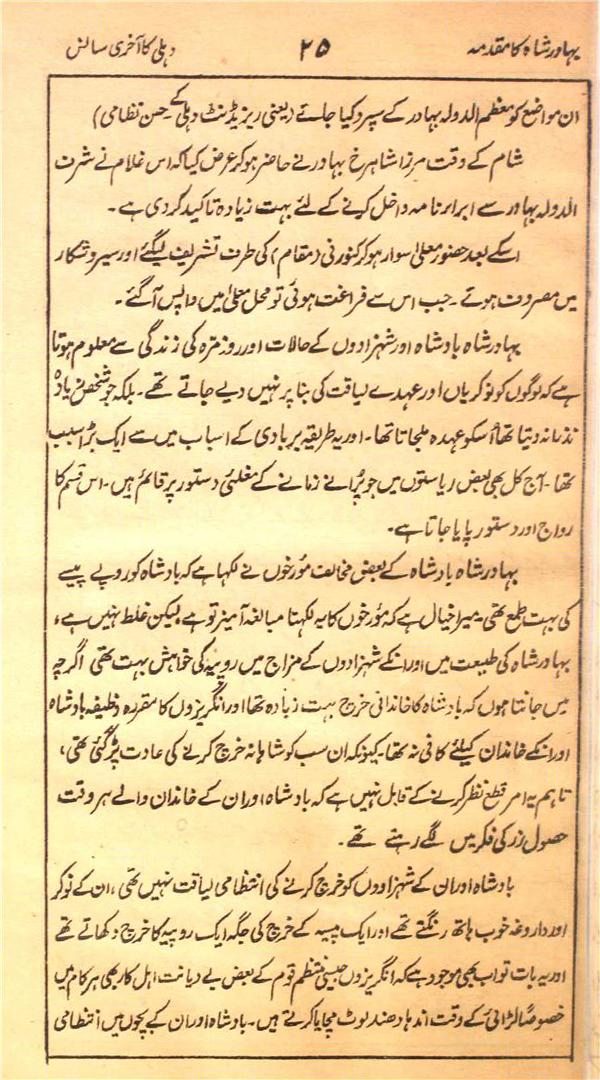 بہادر شاہ کا مقدمہ ۲۵ دہلی کا آخری سانس
ان مواضع کو معظم الدولہ بہادر کے سپرد کیا جائے (یعنی ریزیڈنٹ دہلی کے حسن نظامی)
شام کے وقت مرزا شاہرخ بہادر نے حاضر ہو کر عرض کیا کہ اس غلام نے شرف
الدولہ بہادر سے ابرار نامہ داخل کرنے کے لئے بہت زیادہ تاکید کر دی ہے۔
اسکے بعد حضور معلیٰ سوار ہو کر کنورنی (مقام) کی طرف تشریف لیگئے اور سیر و شکار
میں مصروف ہوئے۔ جب اس سے فراغت ہوئی تو محل معلیٰ میں واپس آگئے۔
بہادر شاہ بادشاہ اور شہزادوں کے حالات اور روزمرہ کی زندگی سے معلوم ہوتا
ہے کہ لوگوں کو نوکریاں اور عہدے لیاقت کی بنا پر نہیں دیے جاتے تھے۔ بلکہ جو شخص زیادہ
نذرانہ دیتا تھا اُسکو عہدہ ملجاتا تھا۔ اور یہ طریقہ بربادی کے اسباب میں سے ایک بڑا سبب
تھا۔ آج کل بھی بعض ریاستوں میں جو پُرانے زمانے کے مغلئی دستور پر قائم ہیں۔ اس قسم کا
رواج اور دستور پایا جاتا ہے۔
بہادر شاہ بادشاہ کے بعض مخالف مؤرخوں نے لکہا ہے کہ بادشاہ کو روپے پیسے
کی بہت طمع تھی۔ میرا خیال ہے کہ مؤرخوں کا یہ لکہنا مبالغہ آمیز تو ہے لیکن غلط نہیں ہے،
بہادر شاہ کی طبیعت میں اور انکے شہزادوں کے مزاج میں روپیہ کی خواہش بہت تھی اگرچہ
میں جانتا ہوں کہ بادشاہ کا خاندانی خرچ بہت زیادہ تھا اور انگریزوں کا مقررہ وظیفہ بادشاہ
اور انکے خاندان کیلئے کافی نہ تھا۔ کیونکہ ان سب کو شاہانہ خرچ کرنے کی عادت پڑ گئی تھی،
تاہم یہ امر قطع نظر کرنے کے قابل نہیں ہے کہ بادشاہ اور ان کے خاندان والے ہر وقت
حصول زر کی فکر میں لگے رہتے تھے۔
بادشاہ اور ان کے شہزادوں کو خرچ کرنے کی انتظامی لیاقت نہیں تھی، ان کے نوکر
اور داروغہ خوب ہاتھ رنگتے تھے اور ایک پیسہ کے خرچ کی جگہ ایک روپیہ کا خرچ دکھاتے تھے
اور یہ بات تو اب بھی موجود ہے کہ انگریزوں جیسی منتظم قوم کے بعض بے دیانت اہل کار بھی ہر کام میں
خصوصاً لڑائی کے وقت اندہا دھند لوٹ مچایا کرتے ہیں۔ بادشاہ اور ان کے بچوں میں انتظامی